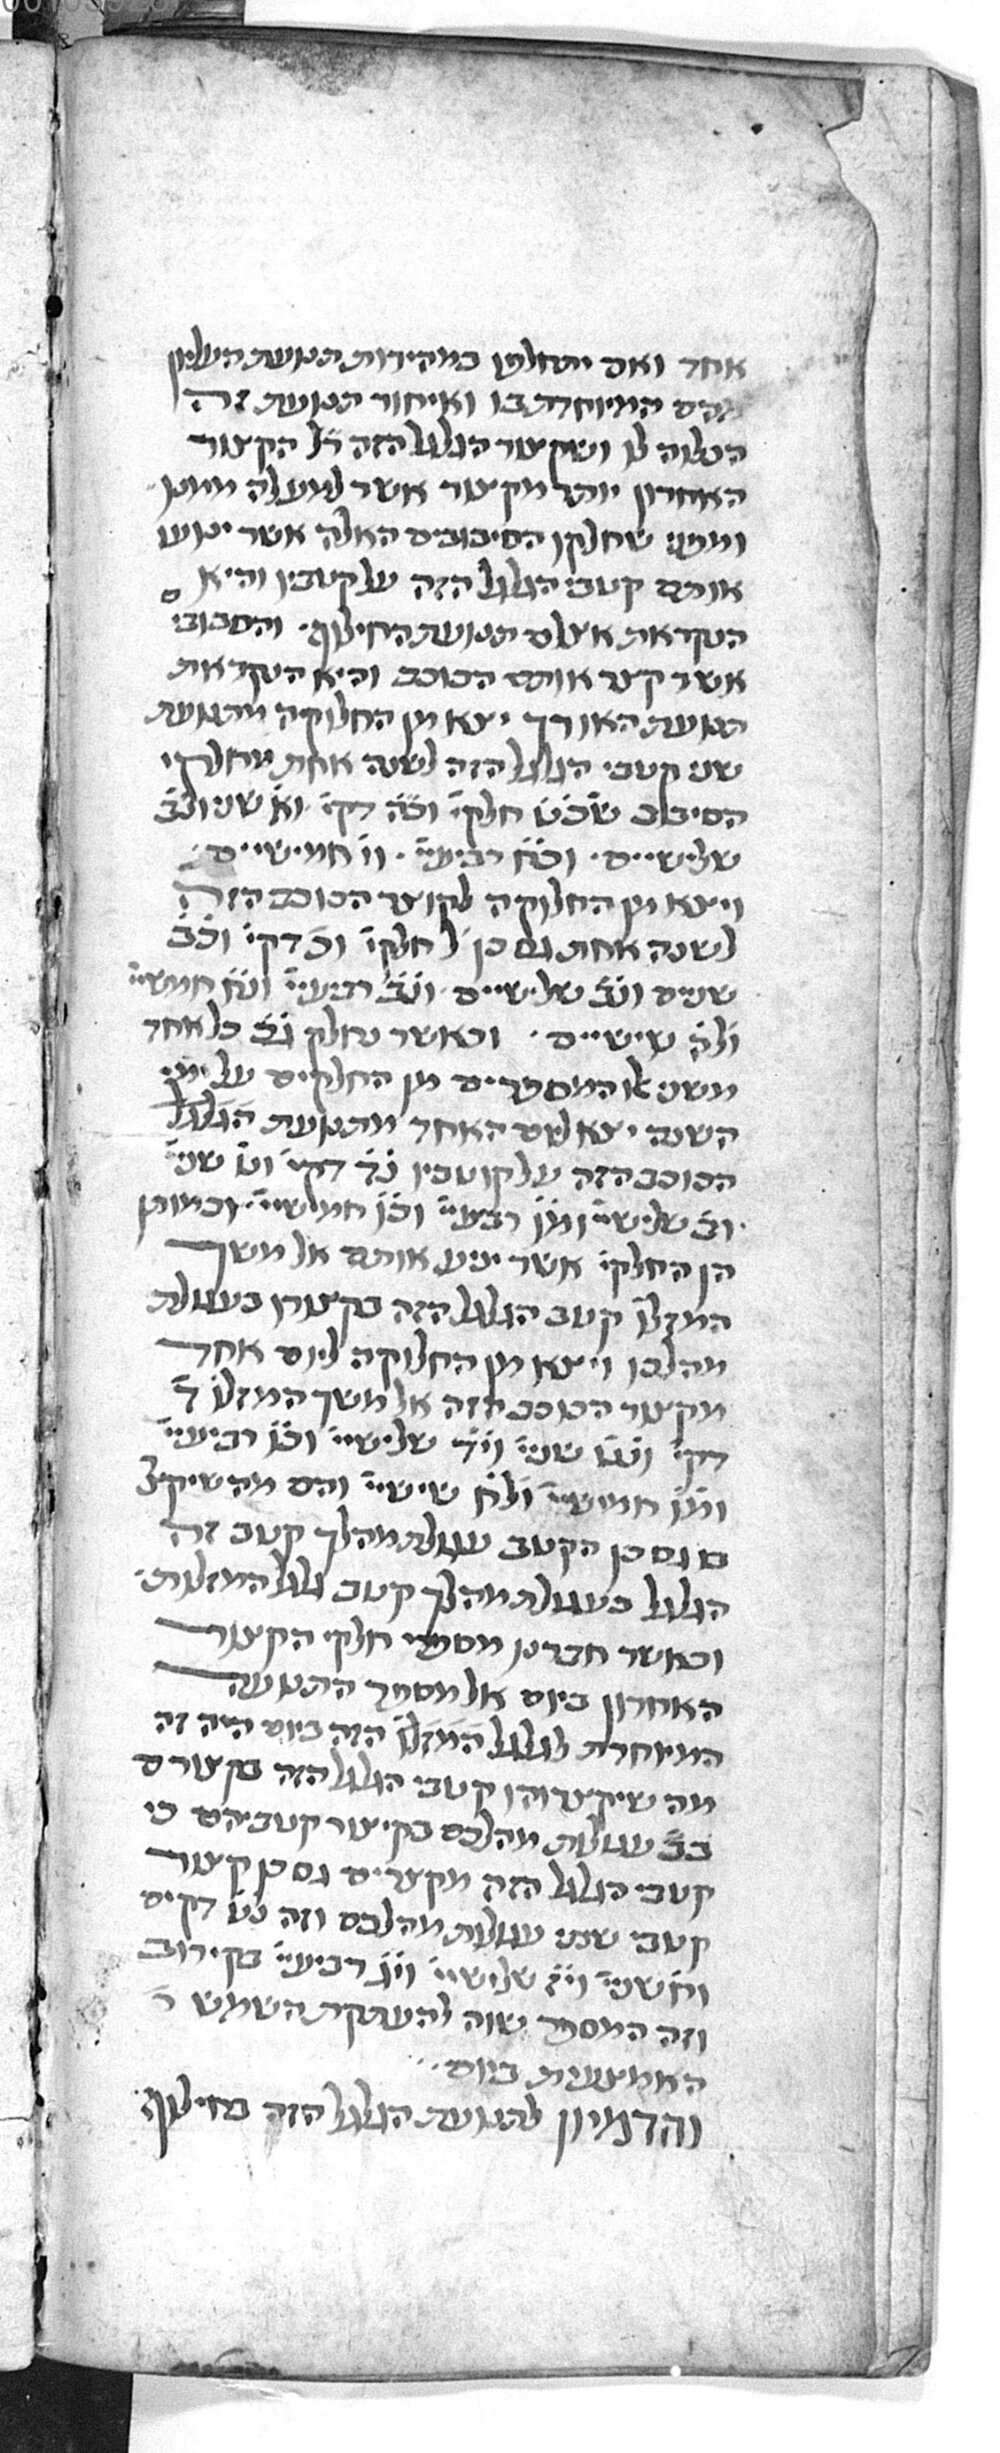 אחד ואם יתחלפו במהירות תנועת העליון
מהם המיוחדת בו ואיחור תנועת זה
השלוה לו ושקצור הגלגל הזה ר״ל הקצור
האחרון יותר מקצור אשר למעלה ממנו
ומפני שחלקו הסיבובים האלה אשר ינוע
אותם קטבי הגלגל הזה על קטביו והיא
הנקראת אצלם תנועת החילוף והסבובים
אשר קצר אותם הכוכב והיא הנקראת
תנועת האורך יצא מן החלוקה מתנועת
שני קטבי הגלגל הזה לשנה אחת מחלקי
הסיבוב שכ״ט חלקי׳ וכ״ה דקי׳ וא׳ שני ונ״ב
שלישיים וכ״ח רביעיי׳ וי׳ חמישיים
ויצא מן החלוקה לקוצר הכוכב הזה
לשנה אחת גם כן ל׳ חלקי׳ וכ׳ דקי׳ וכ״ב
שניים ונ״ב שלישיים ונ״ב רביעיי׳ ונ״ח חמשיי׳
ול״ה שישיים וכאשר נחלק ג״כ כל אחד
משני אלו המספרים מן החלקים על ימי
השנה יצא ליום האחד מתנועת הגלגל
הכוכב הזה על קוטביו נ״ד דקי׳ וט׳ שניי׳
וב׳ שלישיי׳ ומ״ו רביעיי׳ וכ״ו חמישיי׳ וכמותן
הן החלקי׳ אשר יניע אותם אל משך
המזלו׳ קטב הגלגל הזה בקצורו בעגולת
מהלכו ויצא מן החלוקה ליום אחד
מקצור הכוכב הזה אל משך המזלו׳ ד׳
דקי׳ ונ״ט שניי׳ וי״ד שלישיי׳ וכ״ו רביעיי׳
ומ״ו חמישיי׳ ול״א שישיי׳ והם מה שיקצר
בו גם כן הקטב עגולת מהלך קטב זה
הגלגל בעגולת מהלך קטב גלגל המזלות
וכאשר חברנו מספרי חלקי הקצור
האחרון ביום אל מספר התנועה
המיוחדת לגלגל המזלו׳ הזה ביום היה זה
מה שיקצרוהו קטבי הגלגל הזה בקצורם
בב׳ עגולות מהלכם בקיצור קטביהם כי
קטבי הגלגל הזה מקצרים גם כן קצור
קטבי שני עגולות מהלכם וזה נ״ט דקים
וח׳ שניי׳ וי״ז שלישיי׳ וי״ג רביעיי׳ בקירוב
וזה המספר שוה להעתקת השמש
האמצעית ביום
והדמיון לתנועת הגלגל הזה בחילוף